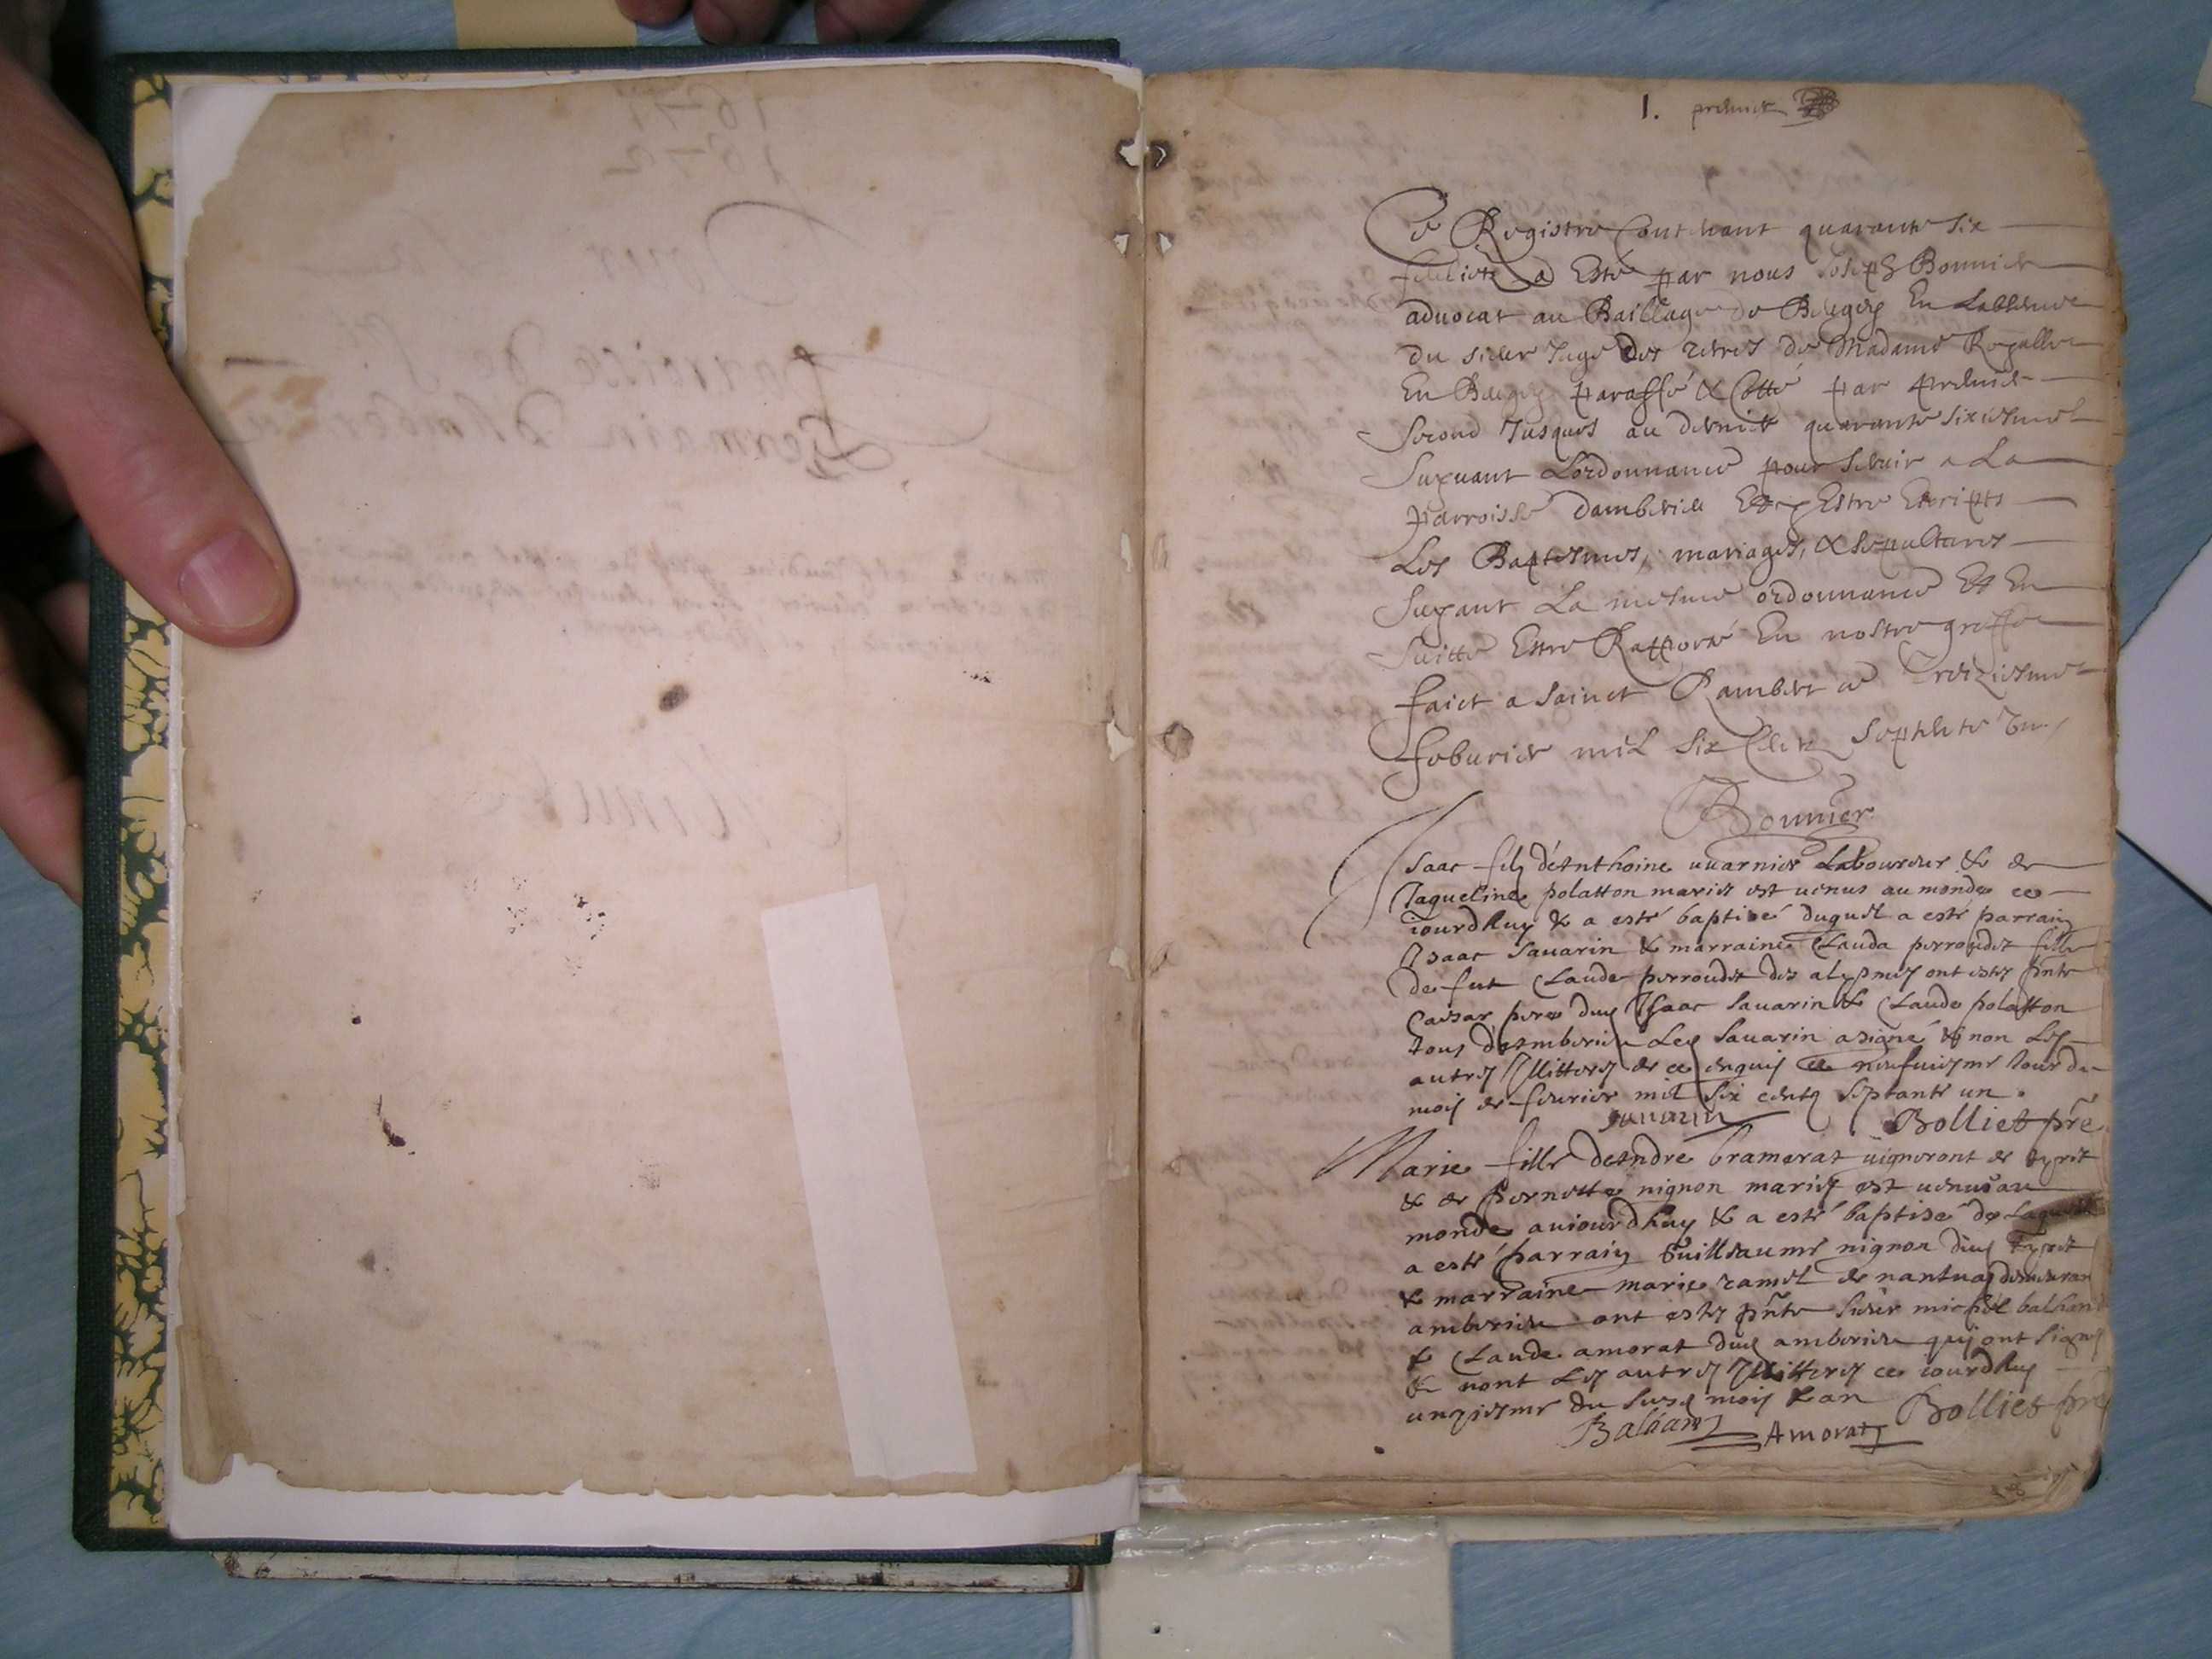 1. premier
Ce Registre Contenant quarante six
feuilletz a Esté par nous Joseph Bonnier
advocat au Baillage de Beugey En Labsence
du sieur Juge des terres de Madame Royalle
En Beugey paraffé & Cotté par premier
Second Jusques au dernier quarante sixiesme
Suyvant Lordonnance pour servir a La
parroisse damberieu Et y Estre Escripts
Les Baptesmes, mariages, & sepultures
Suyvant La mesme ordonnance Et En
suitte Estre Rapporté En nostre greffe
faict a Sainct Rambert ce Treiziesme
febvrier mil Six Centz Septente Un
Bonnier
Isaac filz d'Anthoine uuarnier Laboureur & de
Jaqueline polatton mariés est venus au monde ce
iourdhuy & a esté baptisé duquel a esté parrain
Isaac Sauarin & marraine Clauda perroudet fille
de fut Claude perroudet des ont estés pñts
Caesar pere dud Isaac Sauarin & Claude polatton
tous d'Amberieu Led Sauarin a signé & non Les
autres Illitterés de ce enquis ce neufuiesme Jour du
mois de feurier mil six centz septante un .
Sauarin Bolliet pr̃e
Marie fille d'Andre bramerat uigneront de tyret
& de pernette nignon mariés est uenue au
monde auiourdhuy & a esté baptisé de Laquelle
a esté parrain Guilleaume nignon dud Tyret
& marraine marie ramel de nantua demeurant
amberieu ont estés pñts Sieur michel balhand
& Claude amorat dud amberieu qui ont signés
& nont Les autres Illitterés ce iourdhuy
unziesme du susd mois & an
Amorat Bolliet pr̃e